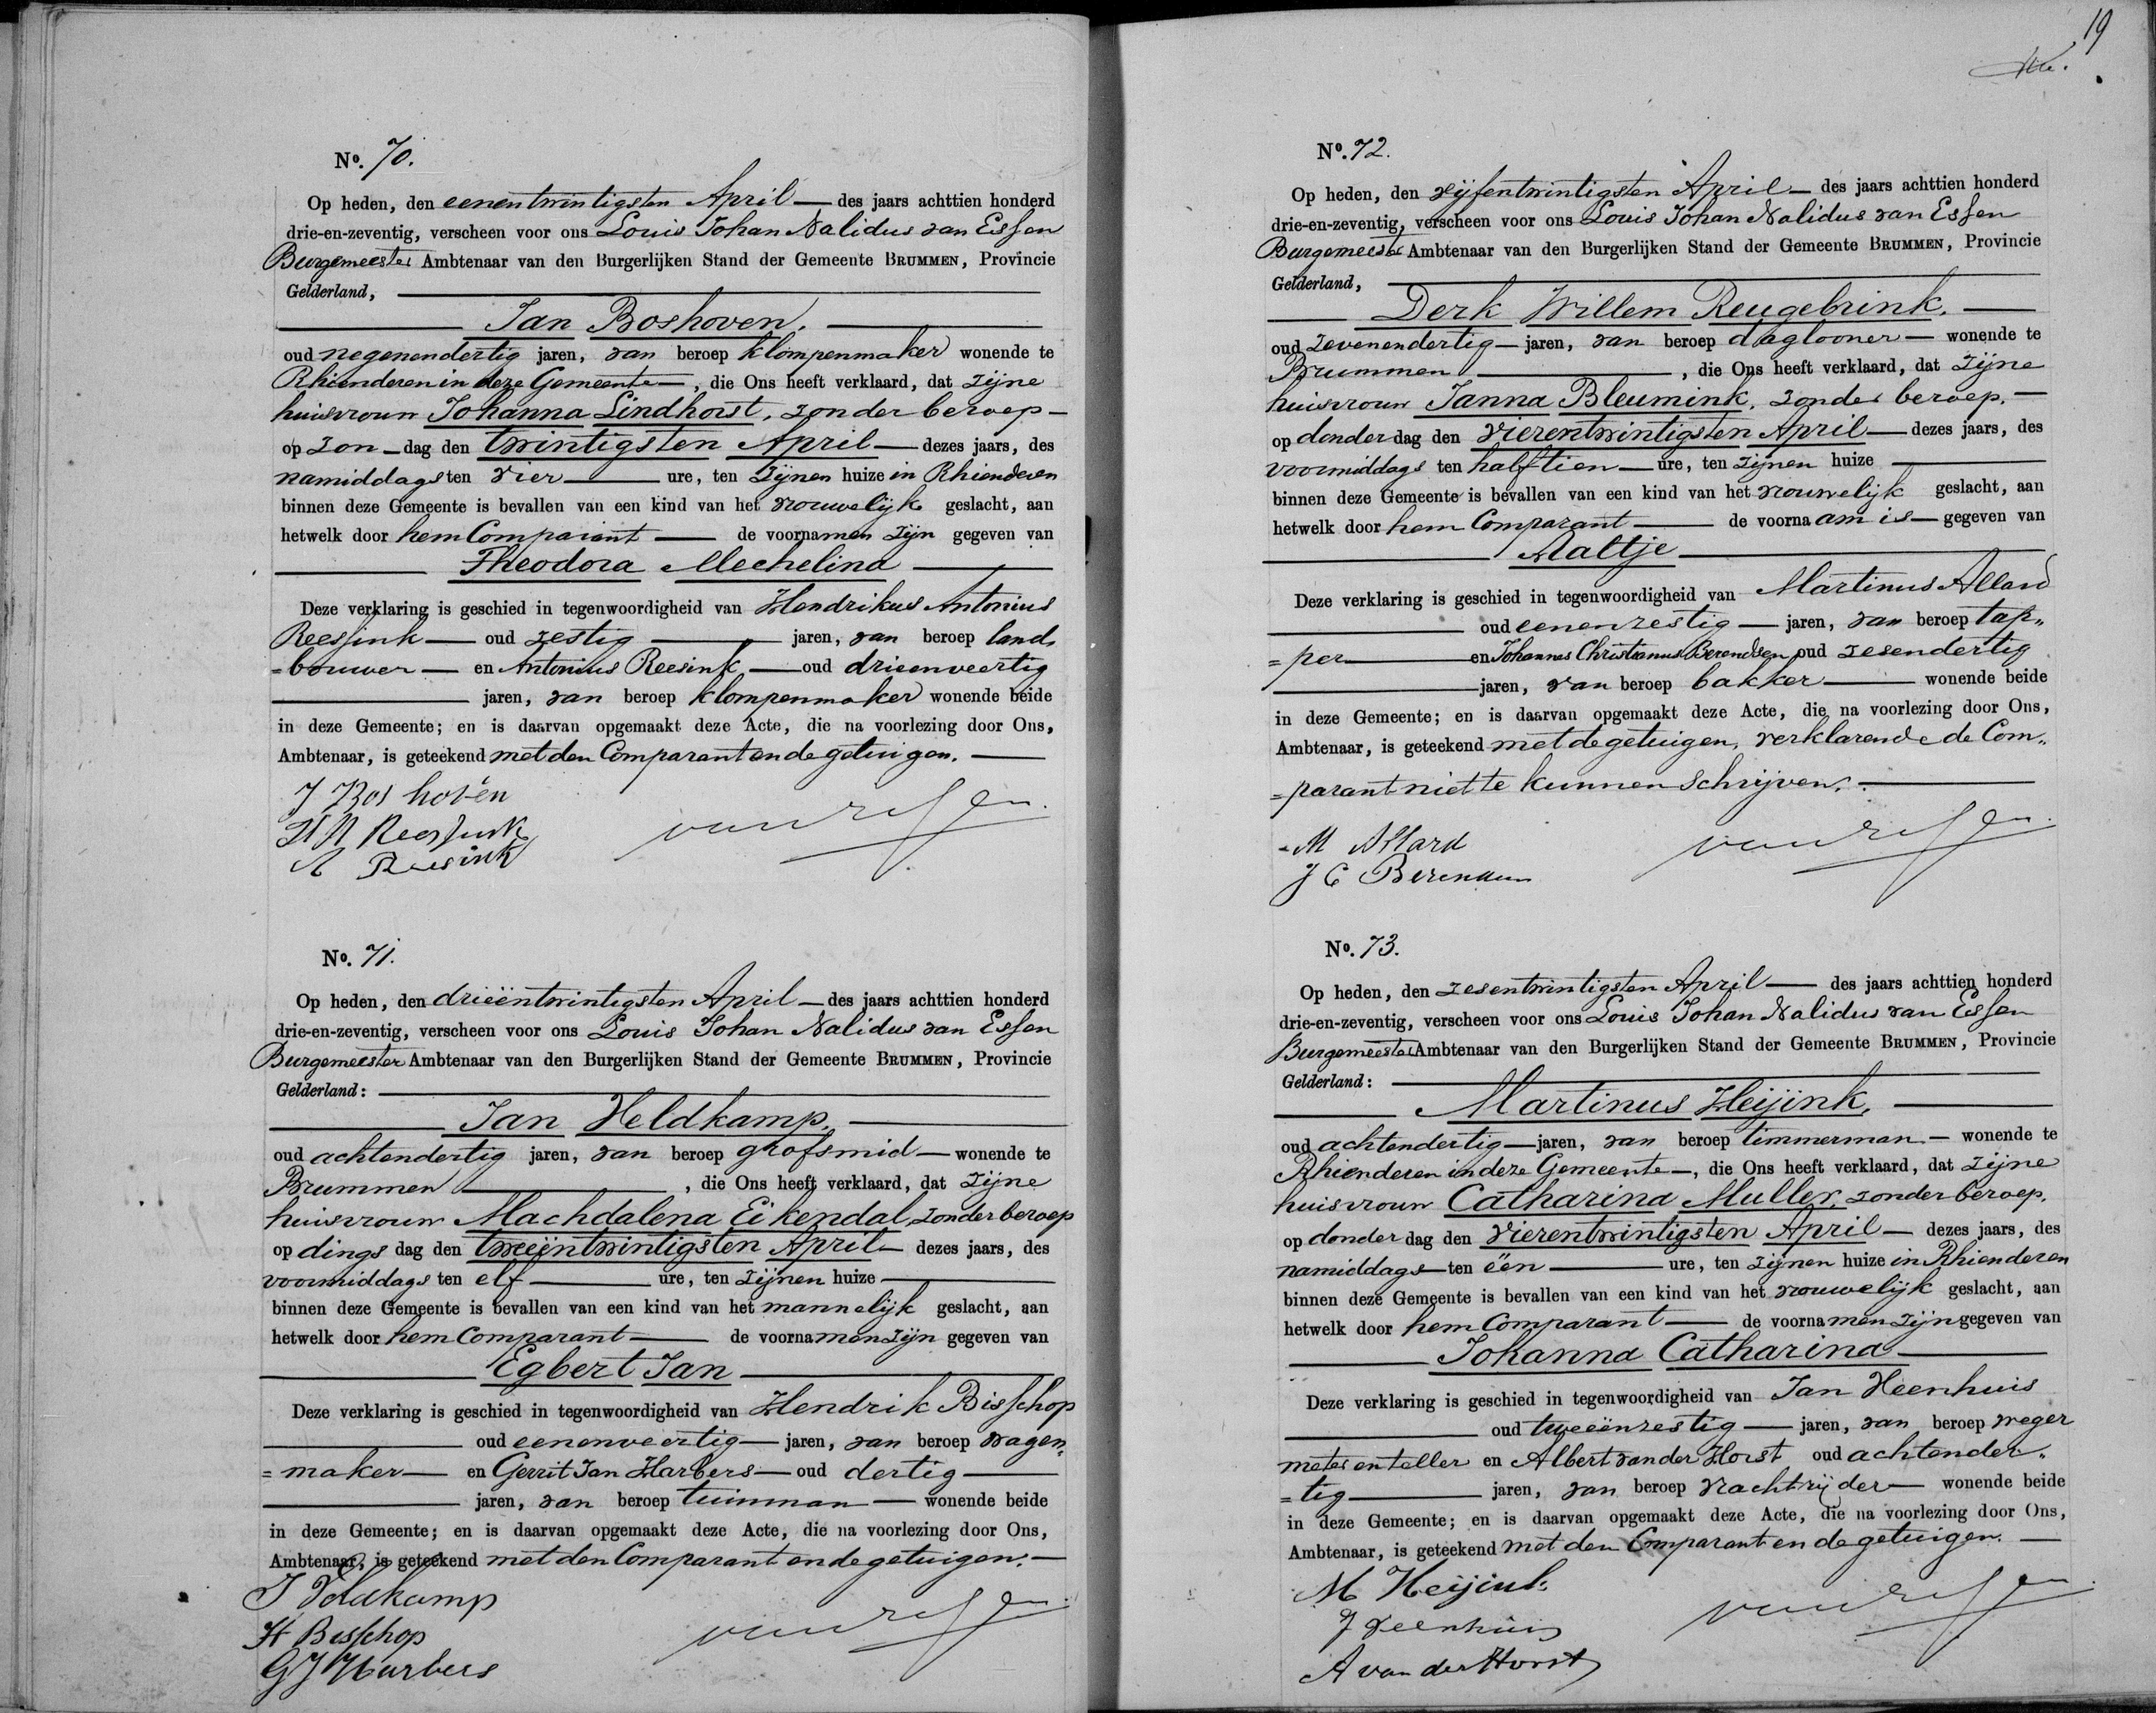 No. 70.
Op heden, den eenentwintigsten April — des jaars achttien honderd
drie-en-zeventig, verscheen voor ons Louis Johan Nalidus van Essen
Burgemeester Ambtenaar van den Burgerlijken Stand der Gemeente BRUMMEN, Provincie
Gelderland,
Jan Boshoven.
oud negenendertig jaren, van beroep klompenmaker wonende te
Rhienderen in deze Gemeente —, die Ons heeft verklaard, dat zijne
huisvrouw Johanna Lindhorst, zonder beroep —
op zon — dag den twintigsten April — dezes jaars, des
namiddags ten vier — ure, ten zijnen huize in Rhienderen
binnen deze Gemeente is bevallen van een kind van het vrouwelijk geslacht, aan
hetwelk door hem Comparant — de voornamen zijn gegeven van
Theodora Mechelina
Deze verklaring is geschied in tegenwoordigheid van Hendrikus Antonius
Reessink — oud zestig — jaren, van beroep land„
=bouwer — en Antonius Reesink — oud drieenveertig
jaren, van beroep klompenmaker wonende beide
in deze Gemeente; en is daarvan opgemaakt deze Acte, die na voorlezing door Ons,
Ambtenaar, is geteekend met den Comparant en de getuigen. —
J Boshoven
H A Reessink
van Essen
A Reesink
No. 71.
Op heden, den drieëntwintigsten April — des jaars achttien honderd
drie-en-zeventig, verscheen voor ons Louis Johan Nalidus van Essen
Burgemeester Ambtenaar van den Burgerlijken Stand der Gemeente BRUMMEN, Provincie
Gelderland:
Jan Veldkamp.
oud achtendertig jaren, van beroep grofsmid — wonende te
Brummen —, die Ons heeft verklaard, dat zijne
huisvrouw Machdalena Eikendal, zonder beroep
op dings dag den tweeëntwintigsten April — dezes jaars, des
voormiddags ten elf — ure, ten zijnen huize —
binnen deze Gemeente is bevallen van een kind van het mannelijk geslacht, aan
hetwelk door hem Comparant — de voornamen zijn gegeven van
Egbert Jan
Deze verklaring is geschied in tegenwoordigheid van Hendrik Bisschop
oud eenenveertig — jaren, van beroep wagen„
=maker — en Gerrit Jan Harbers — oud dertig —
jaren, van beroep tuinman — wonende beide
in deze Gemeente; en is daarvan opgemaakt deze Acte, die na voorlezing door Ons,
Ambtenaar, is geteekend met den Comparant en de getuigen. —
J Veldkamp
H Bisschop
van Essen
G J Harbers
19
No. 72.
Op heden, den vijfentwintigsten April — des jaars achttien honderd
drie-en-zeventig, verscheen voor ons Louis Johan Nalidus van Essen
Burgemeester Ambtenaar van den Burgerlijken Stand der Gemeente BRUMMEN, Provincie
Gelderland,
Derk Willem Reugebrink.
oud zevenendertig — jaren, van beroep daglooner — wonende te
Brummen —, die Ons heeft verklaard, dat zijne
huisvrouw Janna Bleumink, zonder beroep. —
op donder dag den vierentwintigsten April — dezes jaars, des
voormiddags ten half tien — ure, ten zijnen huize —
binnen deze Gemeente is bevallen van een kind van het vrouwelijk geslacht, aan
hetwelk door hem Comparant — de voornaam is — gegeven van
Aaltje
Deze verklaring is geschied in tegenwoordigheid van Martinus Allard
oud eenenzestig — jaren, van beroep tap„
=per — en Johannes Christianus Berendsen oud zesendertig
jaren, van beroep bakker — wonende beide
in deze Gemeente; en is daarvan opgemaakt deze Acte, die na voorlezing door Ons,
Ambtenaar, is geteekend met de getuigen, verklarende de Com„
=parant niet te kunnen schrijven. —
M Allard
van Essen
J C Berendsen
No. 73.
Op heden, den zesentwintigsten April — des jaars achttien honderd
drie-en-zeventig, verscheen voor ons Louis Johan Nalidus van Essen
Burgemeester Ambtenaar van den Burgerlijken Stand der Gemeente BRUMMEN, Provincie
Gelderland:
Martinus Heijink.
oud achtendertig — jaren, van beroep timmerman — wonende te
Rhienderen in deze Gemeente —, die Ons heeft verklaard, dat zijne
huisvrouw Catharina Muller, zonder beroep.
op donder dag den vierentwintigsten April — dezes jaars, des
namiddags — ten één — ure, ten zijnen huize in Rhienderen
binnen deze Gemeente is bevallen van een kind van het vrouwelijk geslacht, aan
hetwelk door hem Comparant — de voornamen zijn gegeven van
Johanna Catharina
Deze verklaring is geschied in tegenwoordigheid van Jan Veenhuis
oud tweeënzestig — jaren, van beroep weger
meter en teller en Albert van der Horst oud achtender„
=tig — jaren, van beroep vrachtrijder — wonende beide
in deze Gemeente; en is daarvan opgemaakt deze Acte, die na voorlezing door Ons,
Ambtenaar, is geteekend met den Comparant en de getuigen. —
M Heijink
J Veenhuis
van Essen
A van der Horst